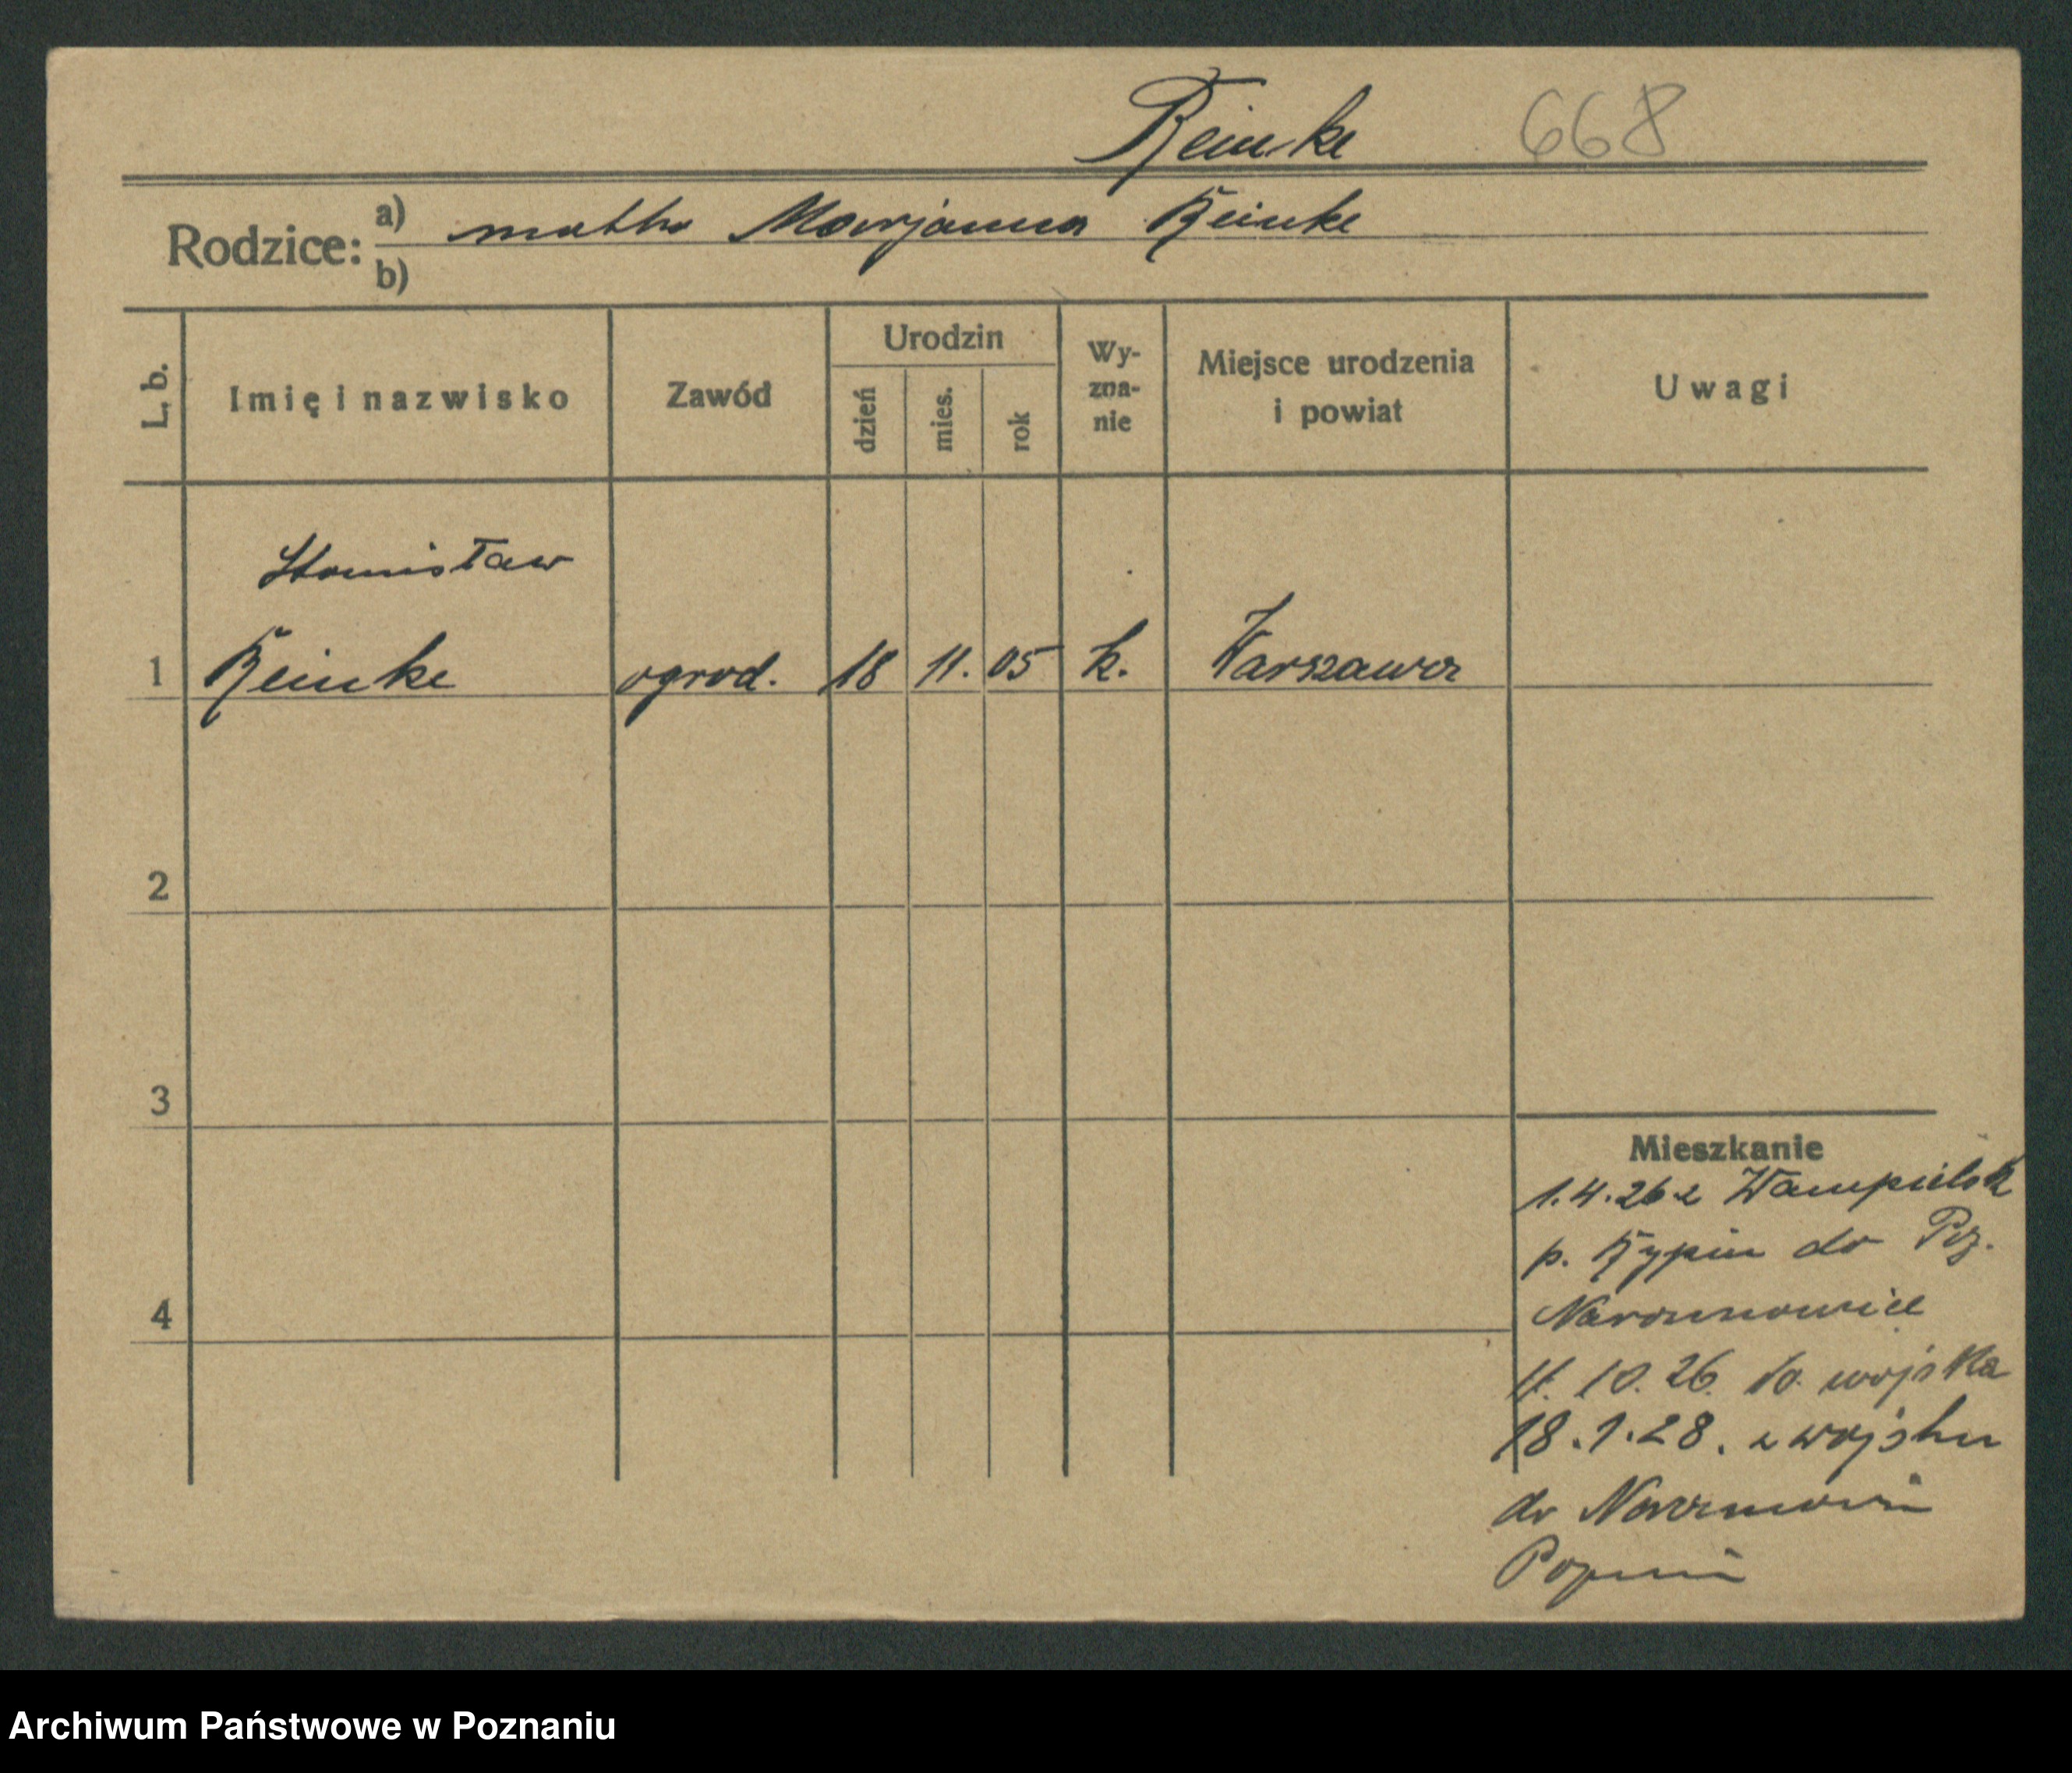 Reinke 668
Rodzice: a) matka Marjanna Reinke
b)
L. b.
Imię i nazwisko
Zawód
Urodzin
dzień
mies.
rok
Wy-
zna-
nie
Miejsce urodzenia
i powiat
Uwagi
Stanisław
1 Reinke ogrod. 18 11. 05 k. Warszawa
2
3
4
Mieszkanie
1.4.26 z
p. Rypin do Poz.
Naramowice
11. 10. 26. do wojska
18.1.28. z wojska
do Naramowic
Archiwum Państwowe w Poznaniu